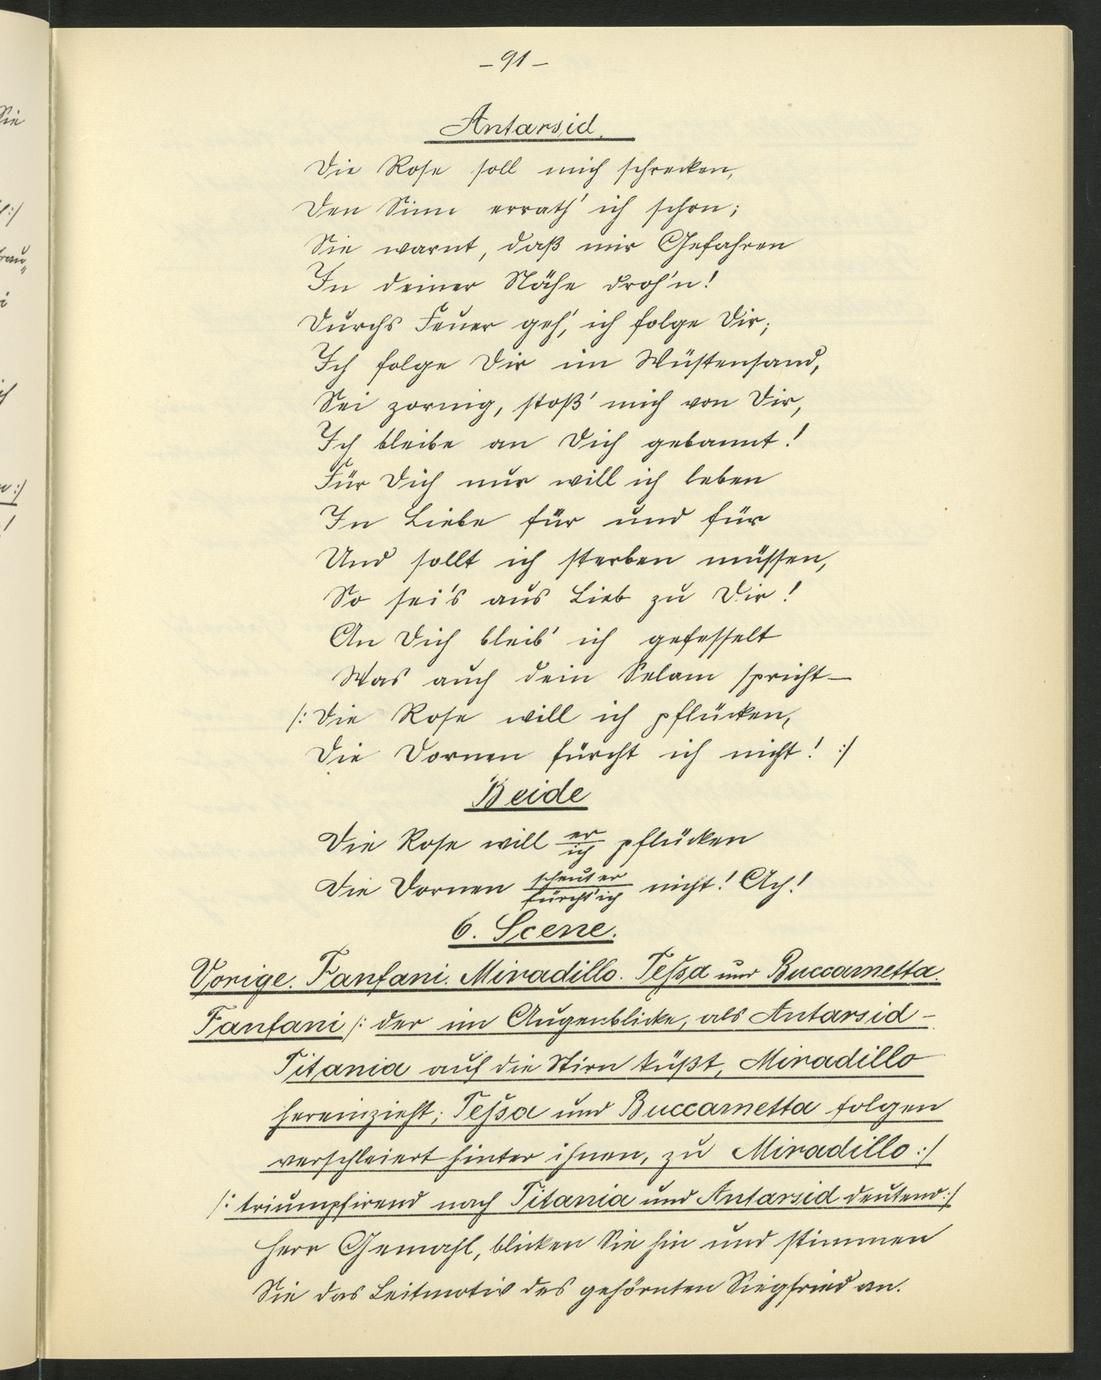 -91-
Antarsid.
Die Rose soll mich schrecken,
Den Sinn errath' ich schon;
Sie warnt, daß mir Gefahren
In deiner Nähe droh'n!
Durchs Feuer geh', ich folge Dir;
Ich folge Dir im Wüstensand,
Sei zornig, stoß' mich von Dir,
Ich bleibe an Dich gebannt!
Für Dich nur will ich leben
In Liebe für und für
Und sollt ich sterben müssen,
So sei's aus Lieb zu Dir!
An Dich bleib' ich gefesselt
Was auch dein Selam spricht—
/: Die Rose will ich pflücken,
Die Dornen fürcht ich nicht! :/
Beide
Die Rose will er/ich pflücken
Die Dornen scheut er/fürcht' ich nicht! Ach!
6. Scene.
Vorige. Fanfani. Miradillo. Teßa und Buccametta.
Fanfani /: der im Augenblicke, als Antarsid -
Titania auf die Stirn küßt, Miradillo
hereinzieht; Teßa und Buccametta folgen
verschleiert hinter ihnen, zu Miradillo :/
/: triumphirend nach Titania und Antarsid deutend :/
Herr Gemahl, blicken Sie hin und stimmen
Sie das Leitmotiv des gehörnten Siegfried an.